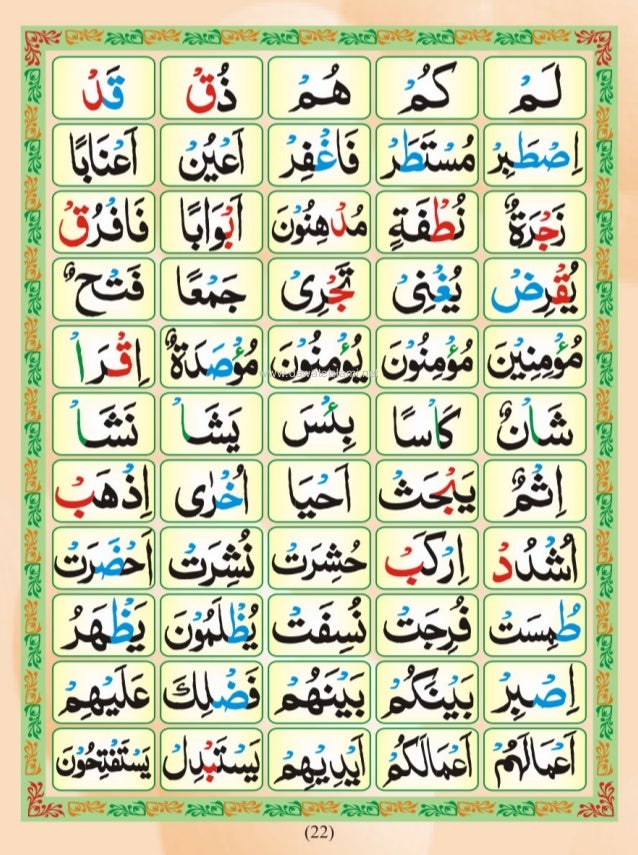 لَمْ كُمْ هُمْ ذُقْ قَدْ
اِصْطَبِرْ مُسْتَطَرْ فَاغْفِرْ اَعْيُنْ اَعْنَابًا
زَجْرَةٌ نُطْفَةٍ مُدْهِنُوْنَ اَبْوَابًا فَافْرُقْ
يُقْرِضْ يُغْنِىْ تَجْرِىْ جَمْعًا فَتْحٌ
مُؤْمِنِيْنَ مُؤْمِنُوْنَ يُؤْمِنُوْنَ مُؤْصَدَةٌ اِقْرَاْ
شَاْنٌ كَاْسًا بِئْسَ يَشَاْ نَشَاْ
اِثْمٌ يَبْحَثْ اَحْيَا اُخْرٰى اِذْهَبْ
اُشْدُدْ اِرْكَبْ حُشِرَتْ نُشِرَتْ اَحْضَرَتْ
طُمِسَتْ فُرِجَتْ نُسِفَتْ يُظْلَمُوْنَ يَظْهَرُ
اِصْبِرْ بَيْنَكُمْ بَيْنَهُمْ فَضْلِكَ عَلَيْهِمْ
اَعْمَالَهُمْ اَعْمَالَكُمْ اَيْدِيْهِمْ يَسْتَبْدِلْ يَسْتَفْتِحُوْنَ
(22)